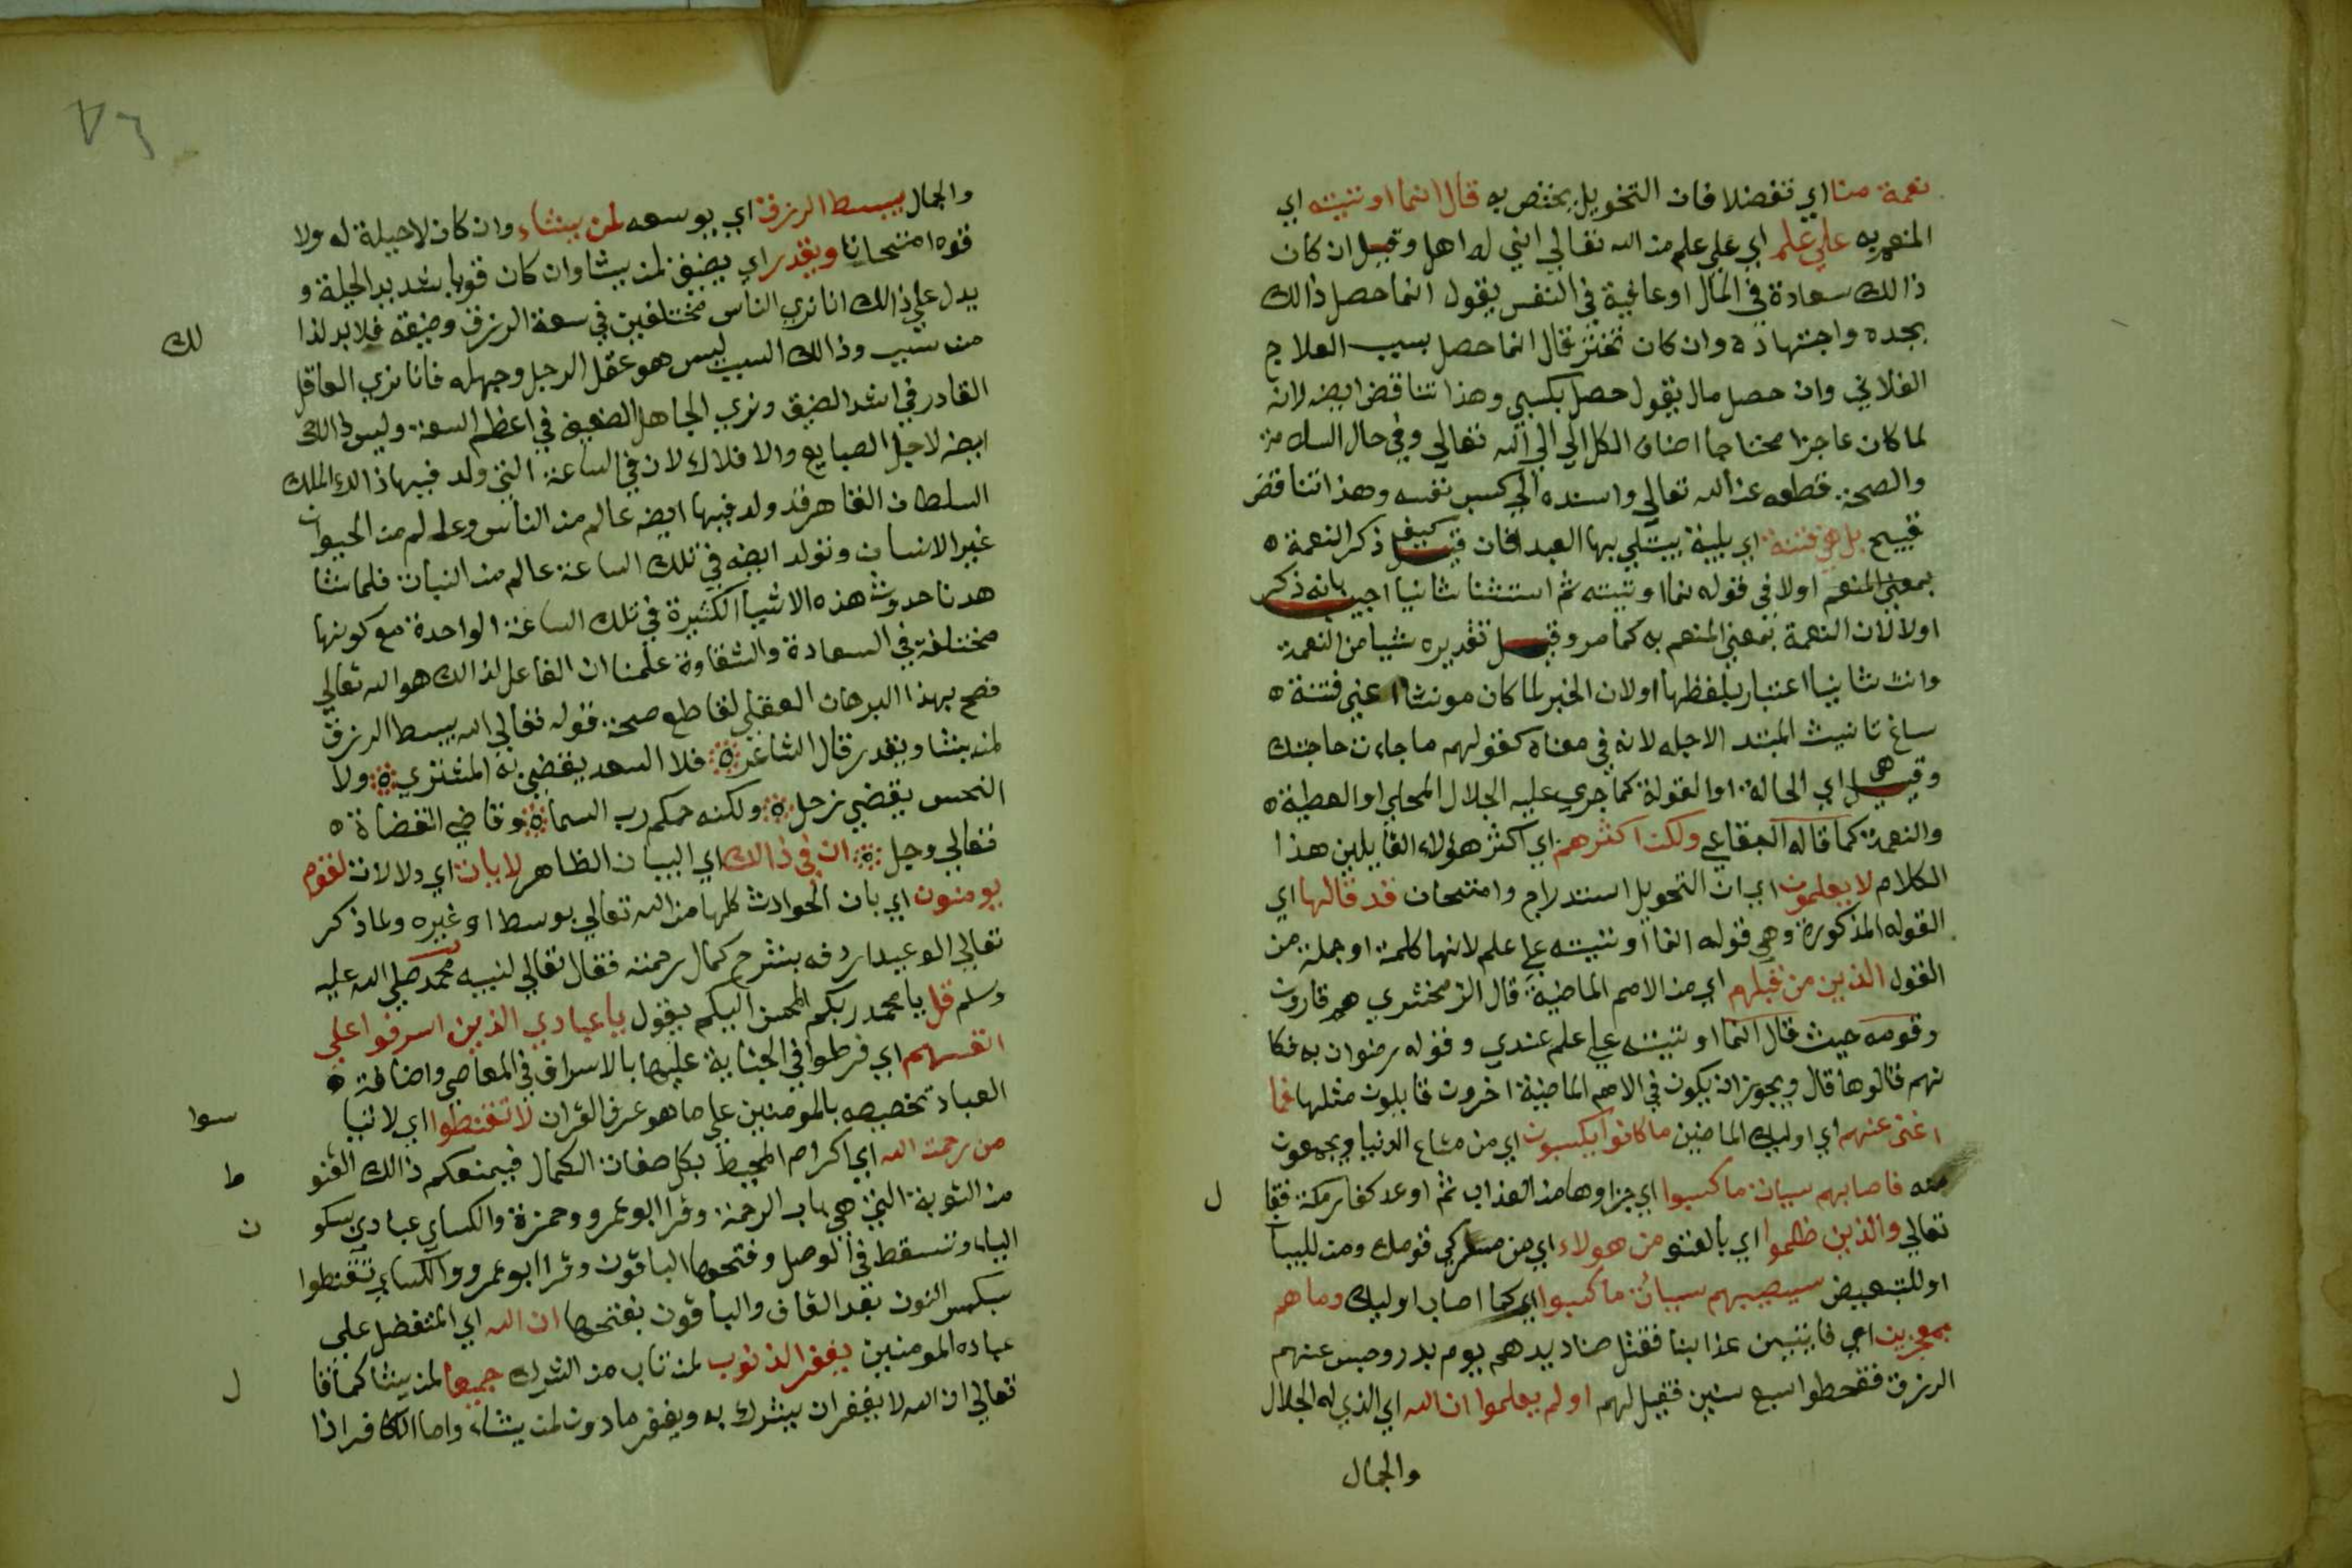 نعمة منا اي تفضلا فان التخويل يختص به قال انما اوتيته اي
المنعم به علي علم اي علي علم من الله تعالي اني له اهل وقيل ان كان
ذالك سعادة في المال او عافية في النفس يقول انما حصل ذالك
بجده واجتهاده وان كان قال انما حصل بسبب العلاج
الفلاني وان حصل مال يقول حصل بكسبي وهذا تناقض ايضه لانه
لما كان عاجزا محتاجا اضاف الكل الي الله تعالي وفي حال السلامة
والصحة قطعه عن الله تعالي واسنده الي كسب نفسه وهذا تناقض
قبيح بل هي فتنة اي بلية يبتلي بها العبد فان قيل كيف ذكر النعمة ه
بمعني المنعم اولا في قوله انما اوتيته ثم ثانيا اجيب بانه ذكر
اولا لان النعمة بمعني المنعم به كما مر وقيل تقديره شيا من النعمة
وانث ثانيا اعتبار بلفظها اولان الخبر لما كان مونثا اعني فتنة ه
ساغ تانيث المبتدا لاجله لانه في معناه كقولهم ما جاءت حاجتك
وقيل هي اي الحالة او القولة كما جري عليه الجلال المحلي او العطية ه
والنعمة كما قاله البقاعي ولكن اكثرهم اي اكثر هؤلاء القايلين هذا
الكلام لا يعلمون اي ان التحويل استدراج وامتحان قد قالها اي
القوله المذكورة وهي قوله انما اوتيته علي علم لانها كلمة او جملة من
القول الذين من قبلهم اي من الامم الماضية قال الزمخشري هم قارون
وقومه حيث قال انما اوتيته علي علم عندي وقوله رضوان به فكا
نهم قالوها قال ويجوز ان يكون في الامم الماضية اخرون قايلون مثلها فما
اغني عنهم اي اوليك الماضين ما كانوا يكسبون اي من متاع الدنيا ويجمعون
منه فاصابهم سيات ما كسبوا اي جزاوها من العذاب ثم اوعد كفار مكة فقا
ل
تعالي والذين ظلموا اي بالعتو من هولاء اي من مشركي قومك ومن للبيا
او للتبعيض سيصيبهم سيات ما كسبوا اي كما اصاب اوليك وما هم
بمعجزين اي فايتين عذابنا فقتل صناديدهم يوم بدر وحبس عنهم
الرزق فقحطوا سبع سنين فقيل لهم اولم يعلموا ان الله اي الذي له الجلال
والجمال
٧٦
والجمال يبسط الرزق اي يوسعه لمن يشاء وان كان لا حيلة له ولا
قوه امتحانا ويقدر اي يضيق لمن يشا وان كان قويا شديد الحيلة و
يدل علي ذالك انا نري الناس مختلفين في سعة الرزق وضيقه فلا بد لذا
لك
من سبب وذالك السبب ليس هو عقل الرجل وجهله فانا نري العاقل
القادر في اشد الضيق ونري الجاهل الضعيف في اعظم السعة وليس ذالك
ايضه لاجل الصبايع والافلاك لان في الساعة التي ولد فيها ذالك الملك
السلطان القاهر قد ولد فيها ايضه عالم من الناس وعالم من الحيوان
غير الانسان وتولد ايضه في تلك الساعة عالم من النبات فلما شا
هدنا حدوث هذه الاشيا الكثيرة في تلك الساعة الواحدة مع كونها
مختلفة في السعادة والشقاوة علمنا ان الفاعل لذالك هو الله تعالي
فصح بهذا البرهان العقلي القاطع صحة قوله تعالي الله يبسط الرزق
لمن يشا ويقدر قال الشاعر ه فلا السعد يقضي به المشتري ه ولا
النحس يقضي زحل ه ولكنه حكم رب السما ه وقاضي القضاة ه
تعالي وجل ه ان في ذالك اي البيان الظاهر لايات اي دلالات لقوم
يومنون اي بان الحوادث كلها من الله تعالي بوسط او غيره ولما ذكر
تعالي الوعيد اردفه بشرح كمال رحمته فقال تعالي لنبيه محمد صلي الله عليه
وسلم قل يا محمد ربكم المحسن اليكم يقول يا عبادي الذين اسرفوا علي
انفسهم اي فرطوا في الجناية عليها بالاسراف في المعاصي واضافة ه
العباد تخصيصه بالمومنين علي ما هو عرف القران لا تقنطوا اي لا تيا
سوا
من رحمت الله اي اكرام المحيط بكل صفات الكمال فيمنعكم ذالك القنو
ط
من التوبة التي هي باب الرحمة وقرا ابو عمرو وحمزة والكساي عبادي بسكو
ن
الياء وتسقط في الوصل وفتحها الباقون وقرا ابو عمرو والكساي تقنطوا
بكسر النون بعد القاف والباقون بفتحها ان الله اي المتفضل علي
عباده المومنين يغفر الذنوب لمن تاب من الشرك جميعا لمن يشا كما قا
ل
تعالي ان الله لا يغفر ان يشرك به ويغفر ما دون لمن يشاء واما الكافر اذا